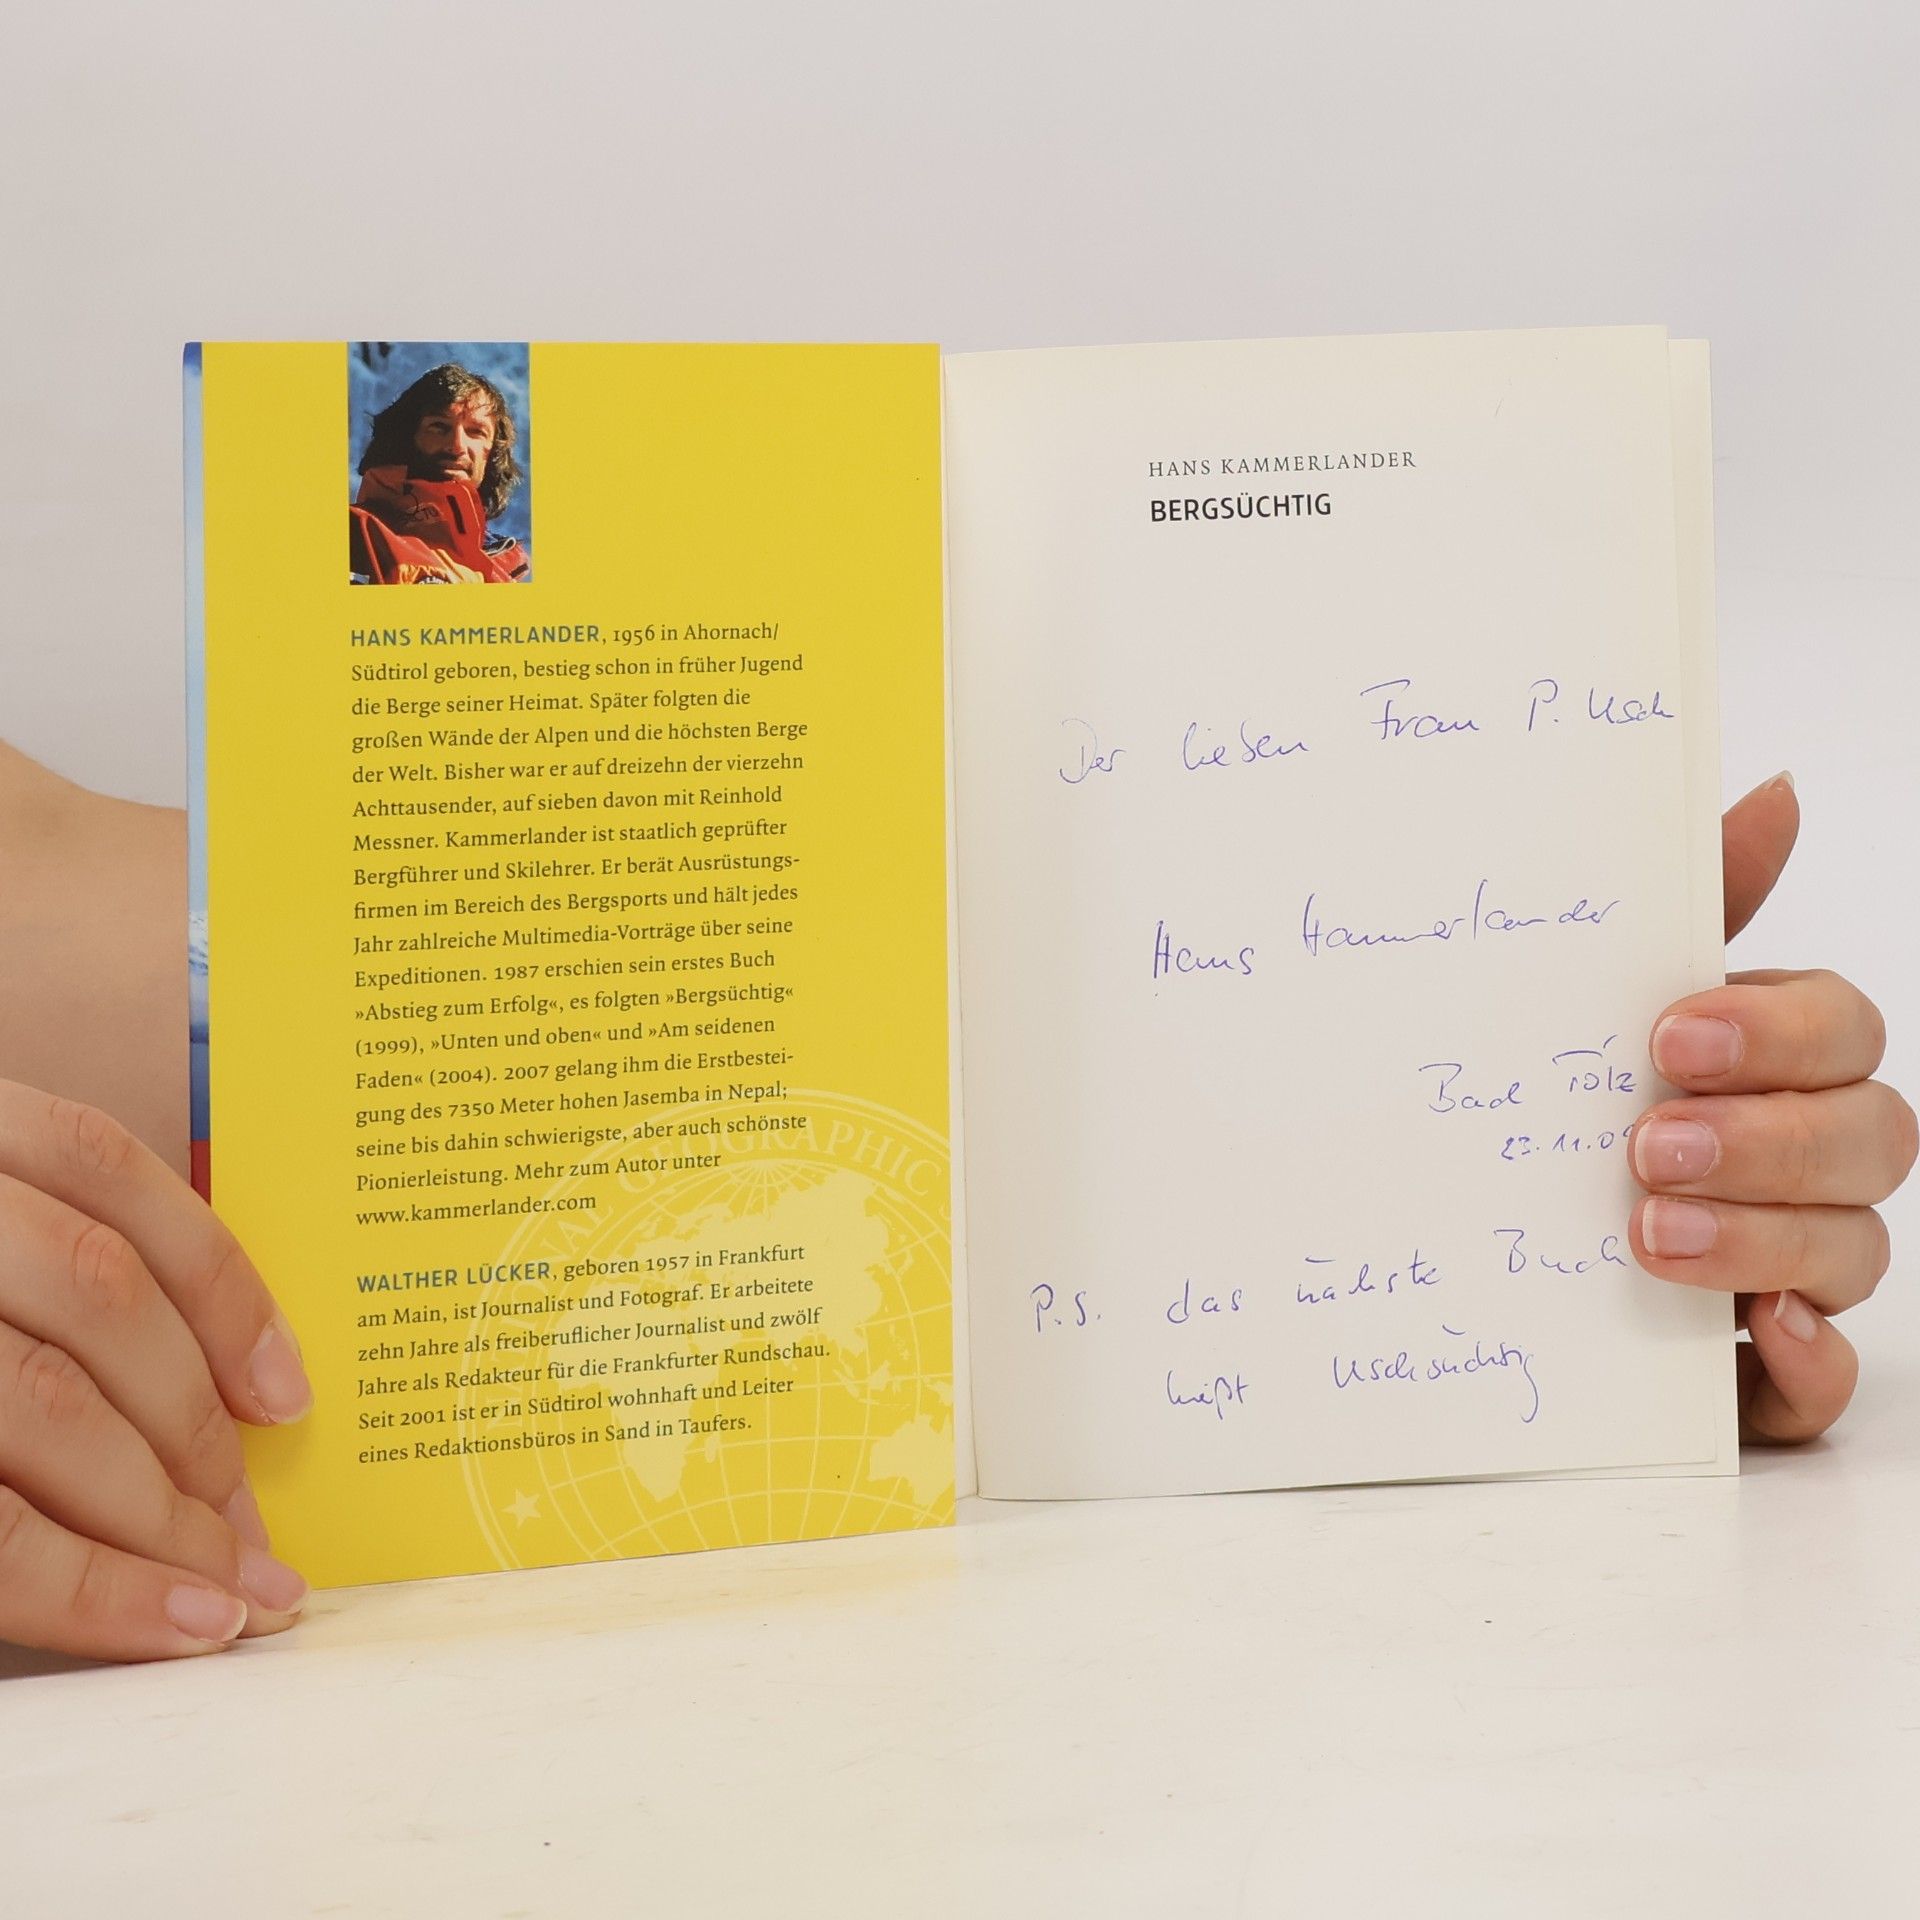 HANS KAMMERLANDER, 1956 in Ahornach/
Südtirol geboren, bestieg schon in früher Jugend
die Berge seiner Heimat. Später folgten die
großen Wände der Alpen und die höchsten Berge
der Welt. Bisher war er auf dreizehn der vierzehn
Achttausender, auf sieben davon mit Reinhold
Messner. Kammerlander ist staatlich geprüfter
Bergführer und Skilehrer. Er berät Ausrüstungs-
firmen im Bereich des Bergsports und hält jedes
Jahr zahlreiche Multimedia-Vorträge über seine
Expeditionen. 1987 erschien sein erstes Buch
»Abstieg zum Erfolg«, es folgten »Bergsüchtig«
(1999), »Unten und oben« und »Am seidenen
Faden« (2004). 2007 gelang ihm die Erstbestei-
gung des 7350 Meter hohen Jasemba in Nepal;
seine bis dahin schwierigste, aber auch schönste
Pionierleistung. Mehr zum Autor unter
www.kammerlander.com
WALTHER LÜCKER, geboren 1957 in Frankfurt
am Main, ist Journalist und Fotograf. Er arbeitete
zehn Jahre als freiberuflicher Journalist und zwölf
Jahre als Redakteur für die Frankfurter Rundschau.
Seit 2001 ist er in Südtirol wohnhaft und Leiter
eines Redaktionsbüros in Sand in Taufers.
NATIONAL GEOGRAPHIC S
HANS KAMMERLANDER
BERGSÜCHTIG
Der lieben Frau P. Usch
Hans Kammerlander
Bad Tölz
23.11.09
P.S. das nächste Buch
heißt Uschsüchtig